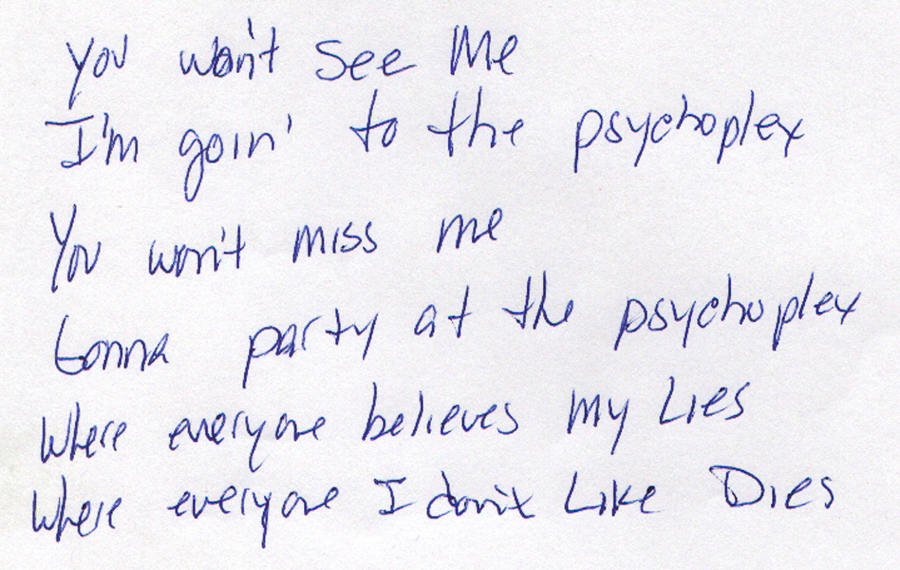 You won't See Me
I'm goin' to the psychoplex
You won't miss me
Gonna party at the psychoplex
Where everyone believes my Lies
Where everyone I don't Like Dies